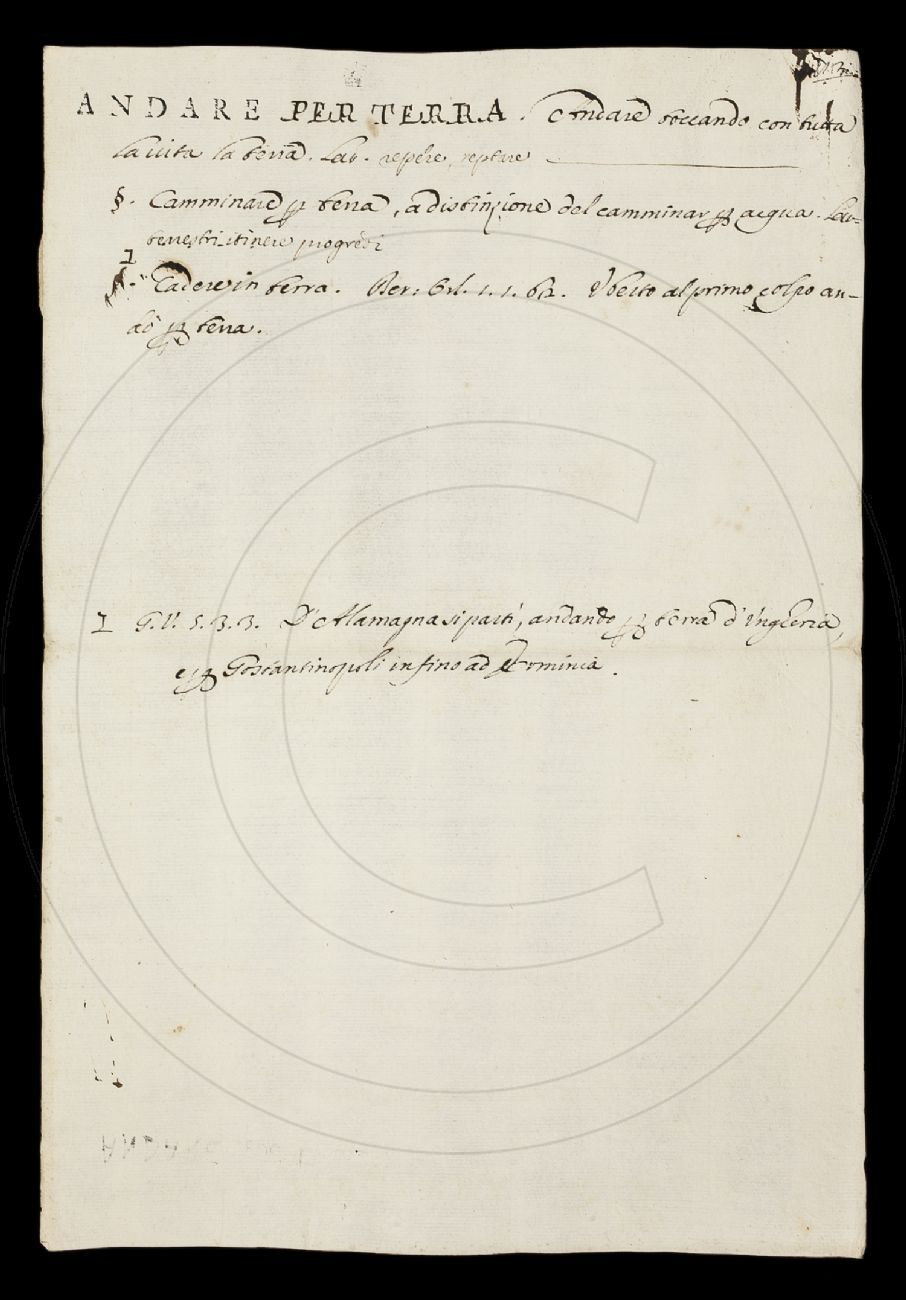 ANDARE PER TERRA. Andare toccando con tutta
la vita la terra. Lat. repere, reptare
§. Camminare per terra, a distinzione del camminar per acqua. Lat.
terrestri itinere progredi
I
§. Cadere in terra. Ber. Orl. 1. 1. 62. Uberto al primo colpo an-
dò per terra.
I G. V. 5. 3. 3. D'Alamagna si partì, andando per terra d'Ungheria,
e per Gostantinopoli infino ad Erminia.